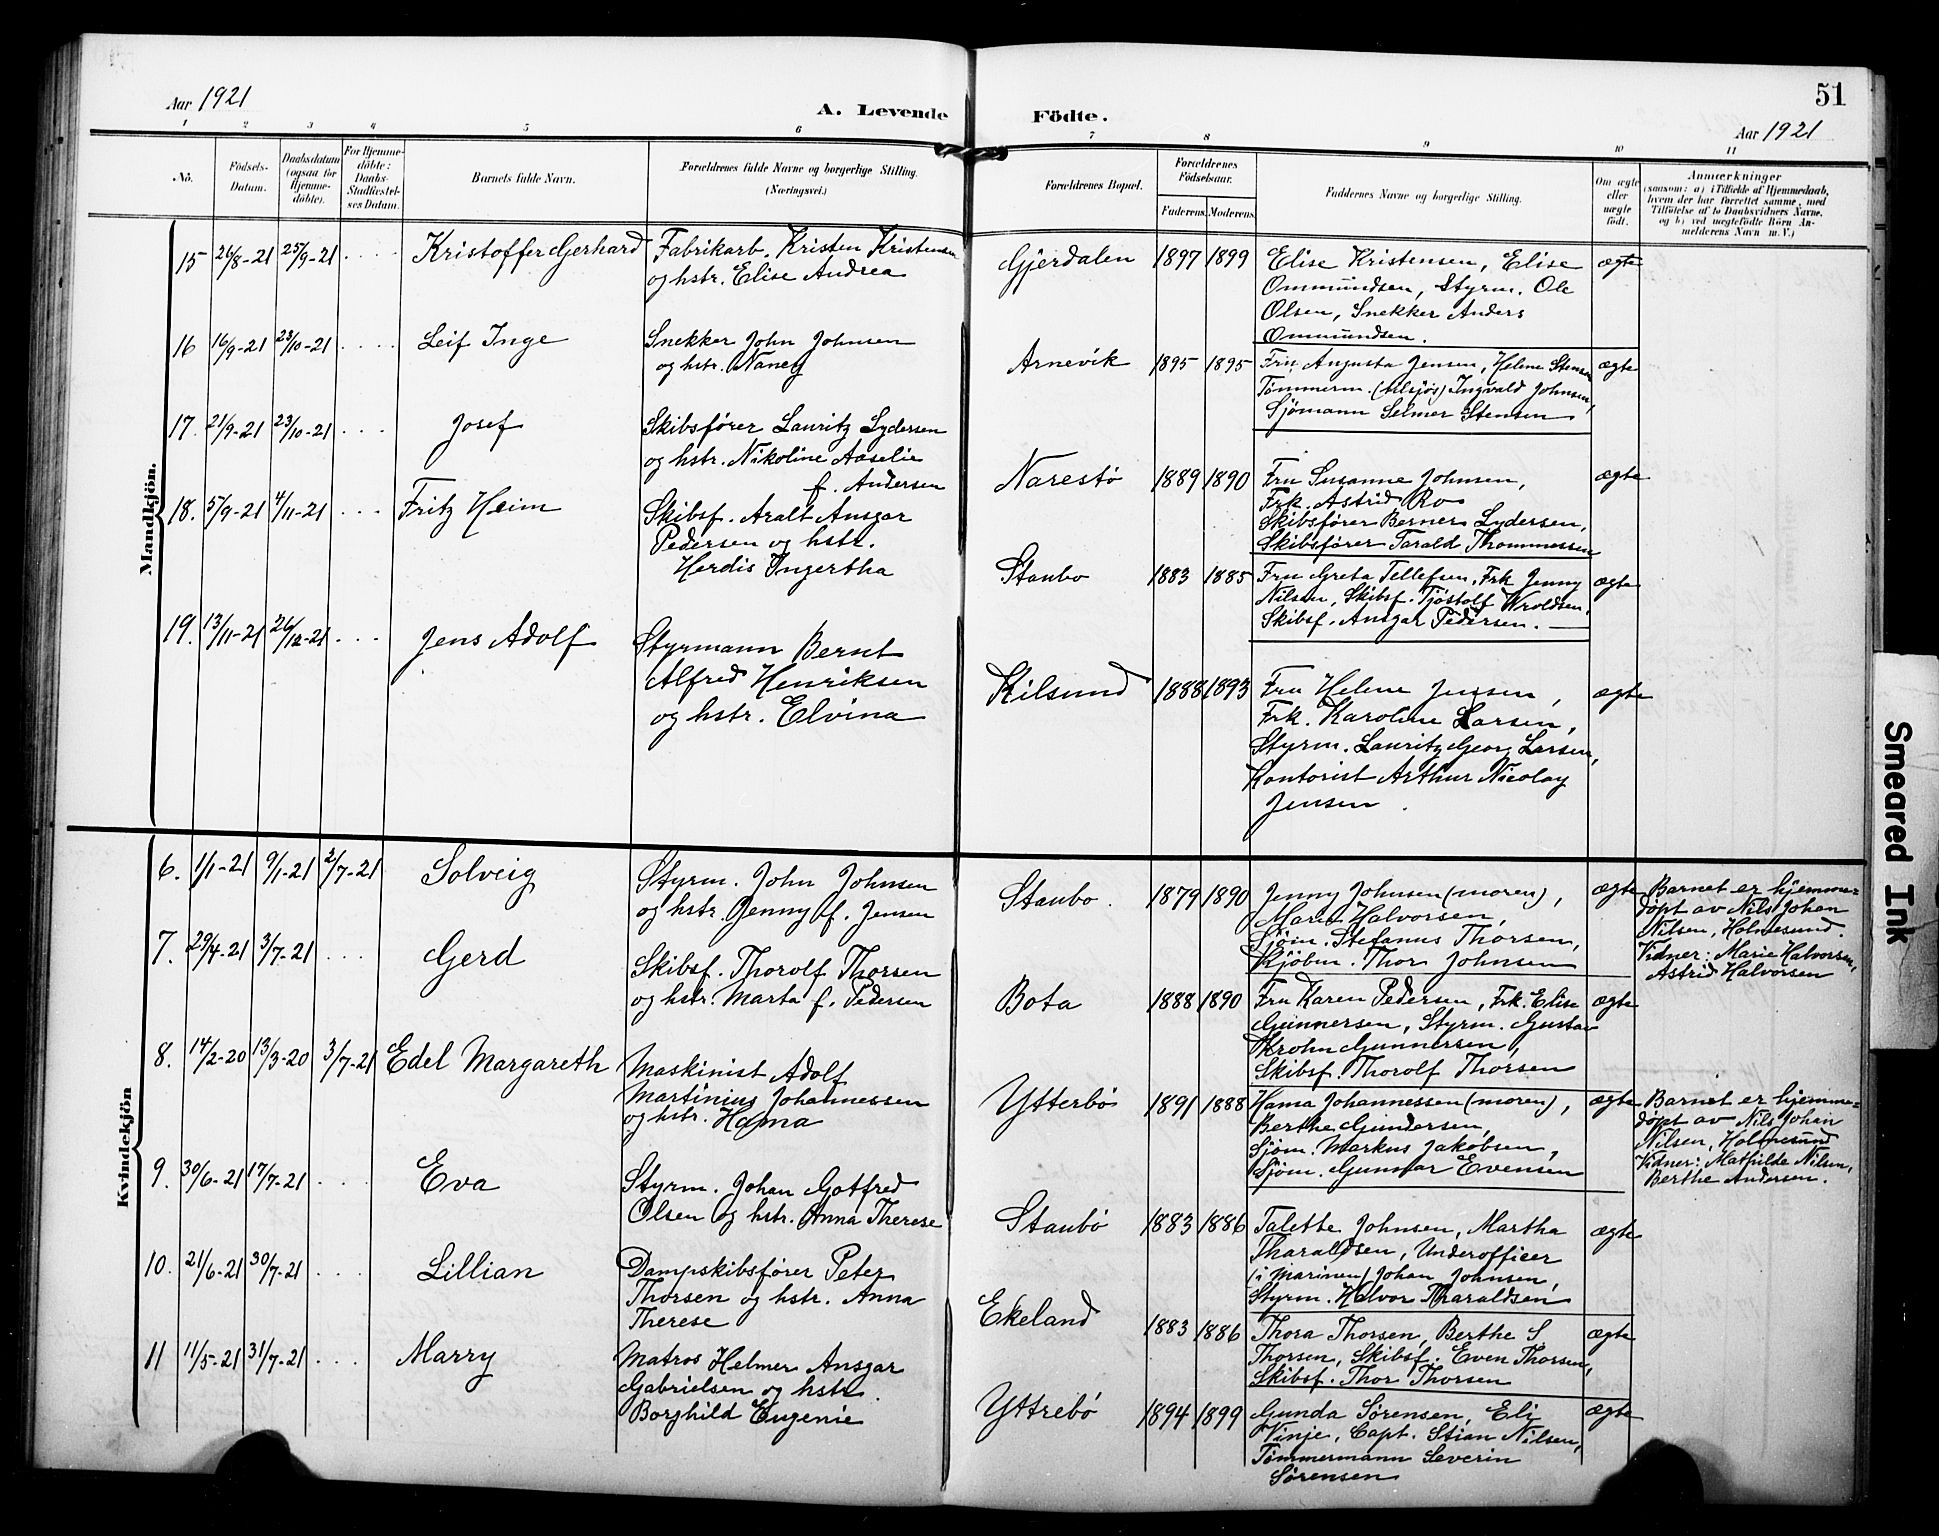 Aar 1921
A. Levende
1 2 3 4 5 6
No.
Födsels-
Datum.
Daabsdatum
(ogsaa for
Hjemme-
döbte).
For Hjemme-
döbte:
Daabs-
Stadfæstel-
ses Datum.
Barnets fulde Navn.
Forældrenes fulde Navne og borgerlige Stilling.
(Næringsvei.)
Mandkjön.
15 26/8-21 25/9-21 Kristoffer Gerhard Fabrikarb. Kristen Kristensen
og hstr. Elise Andrea
16 16/9-21 23/10-21 Leif Inge Snekker John Johnsen
og hstr. Nancy
17. 21/9-21 23/10-21 Josef Skibsfører Lauritz Lydersen
og hstr. Nikoline Aaselie
f. Andersen
18. 5/9-21 4/11-21 Fritz Heim Skibsf. Aralt Ansgar
Pedersen og hstr.
Herdis Ingertha
19. 13/11-21 26/12-21 Jens Adolf Styrmann Bernt
Alfred Henriksen
og hstr. Elvina
Kvindekjön
6. 1/1-21 9/1-21 2/7-21 Solveig Styrm. John Johnsen
og hstr. Jenny f. Jensen
7. 29/4-21 3/7-21 Gerd Skibsf. Thorolf Thorsen
og hstr. Marta f. Pedersen
8. 14/2-20 13/3-20 3/7-21 Edel Margareth Maskinist Adolf
Martinius Johannessen
og hstr. Hanna
9. 30/6-21 17/7-21 Eva Styrm. Johan Gotfred
Olsen og hstr. Anna Therese
10. 21/6-21 30/7-21 Lillian Dampskibsfører Peter
Thorsen og hstr. Anna
Therese
11 11/5-21 31/7-21 Marry Matros Helmer Ansgar
Gabrielsen og hstr.
Borghild Eugenie
51
Födte.
Aar 1921
7 8 9 10 11
Forældrenes Bopæl.
Forældrenes
Födselsaar.
Faderens. Moderens.
Faddernes Navne og borgerlige Stilling.
Om ægte
eller
uægte
födt.
Anmærkninger
(saasom: a) i Tilfælde af Hjemmedaab,
hvem der har forrettet samme, med
Tilföielse af to Daabsvidners Navne,
og b) ved uægtefödte Börn An-
melderens Navn m. V.)
Gjerdalen 1897 1899 Elise Kristensen, Elise ægte
Ommundsen, Styrm. Ole
Olsen, Snekker Anders
Ommundsen.
Arnevik 1895 1895 Fru Augusta Jensen, Helene Stensen ægte
Tømmerm. (tilsjøs) Ingvald Johnsen,
Sjømann Selmer Stensen
Narestø 1889 1890 Fru Susanne Johnsen, ægte
Frk. Astrid Ro
Skibsfører Berner Lydersen,
Skibsfører Tarald Thommessen
Staubo 1883 1885 Fru Greta Tellefsen, Frk Jenny ægte
Nilsen, Skibsf. Tjøstolf Wroldsen,
Skibsf. Ansgar Pedersen.
Kilsund 1888 1893 Fru Helene Jensen, ægte
Frk. Karoline Larsen,
Styrm. Lauritz Georg Larsen,
Kontorist Arthur Nicolay
Jensen.
Staubo. 1879 1890 Jenny Johnsen (moren), ægte Barnet er hjemme-
Marie Halvorsen, døpt av Nils Johan
Sjøm. Stefanus Thorsen, Nilsen, Holmesund.
Kjøbm. Thor Johnsen Vidner: Marie Halvorsen,
Astrid Halvorsen
Bota 1888 1890 Fru Karen Pedersen, Frk. Elise ægte
Gunnersen, Styrm. Gustav
Krohn Gunnersen,
Skibsf. Thorolf Thorsen
Ytterbø 1891 1888 Hanna Johannessen (moren), ægte Barnet er hjemme-
Berthe Gundersen, døpt av Nils Johan
Sjøm. Markus Jakobsen, Nilsen, Holmesund
Sjøm. Gunnar Evensen Vidner: Mathilde Nilsen,
Berthe Andersen.
Staubø 1883 1886 Talette Johnsen, Martha ægte
Tharaldsen, Underofficer
(i marinen) Johan Johnsen,
Styrm. Halvor Tharaldsen
Ekeland 1883 1886 Thora Thorsen, Berthe S. ægte
Thorsen, Skibsf. Even Thorsen,
Skibsf. Thor Thorsen
Yttrebø 1894 1899 Gunda Sørensen, Eli ægte
Vinje, Capt. Stian Nilsen,
Tømmermann Severin
Sørensen
Smeared Ink